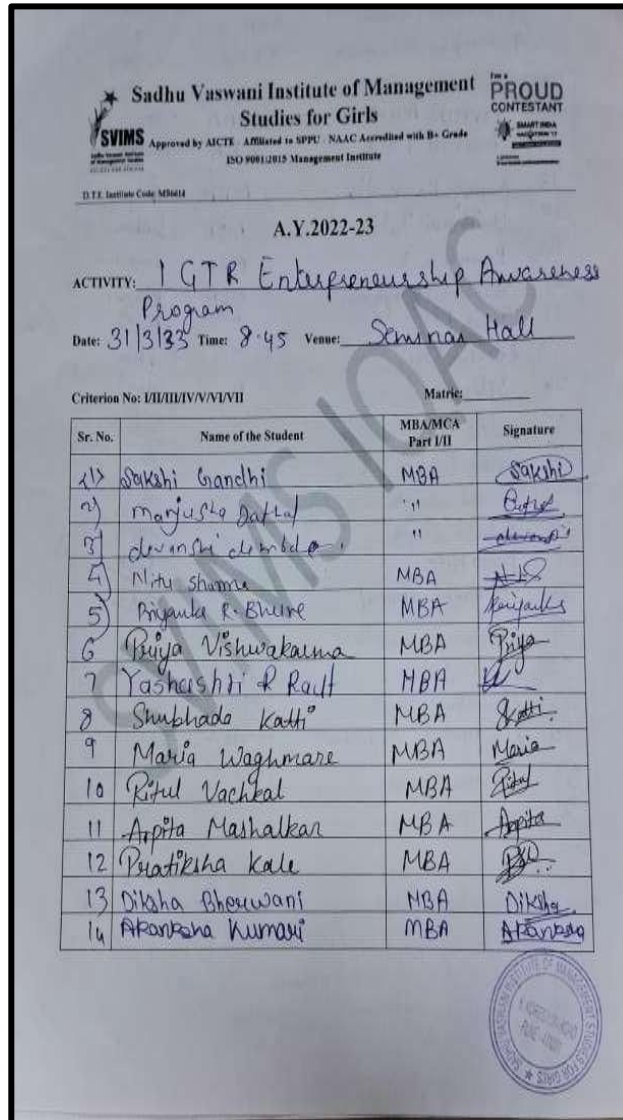 Sadhu Vaswani Institute of Management
Studies for Girls
SVIMS
Approved by AICTE Affiliated to SPPU NAAC Accredited with B+ Grade
ISO 9001:2015 Management Institute
I'm a
PROUD
CONTESTANT
SMART INDIA
D.T.E. Institute Code:
A.Y.2022-23
ACTIVITY: IGTR Entupreneurship Awareness
Program
Date: 31/3/23 Time: 8.45 Venue: Seminar Hall
Criterion No: I/II/III/IV/V/VI/VII Matric:
Sr. No. Name of the Student MBA/MCA Part I/II Signature
1) Sakshi Gandhi MBA Sakshi
2) Manjusha "
3) devanshi "
4) Nitu Sharma MBA
5) Priyanka R. Bhure MBA Priyanka
6 Priya Vishwakarma MBA Priya
7 Yashashri R Raut MBA
8 Shubhada Katti MBA Katti
9 Maria Waghmare MBA Maria
10 Ritul Vachkal MBA Ritul
11 Arpita Mashalkar MBA Arpita
12 Pratiksha Kale MBA
13 Diksha Bherwani MBA Diksha
14 Akanksha Kumari MBA Akanksha
SVIMS IQAC
SADHU VASWANI INSTITUTE OF MANAGEMENT STUDIES FOR GIRLS